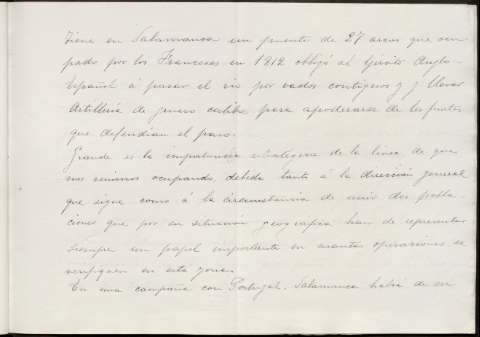 Tiene en Salamanca un puente de 27 arcos que ocu-
pado por los Franceses en 1812 obligó al Ejército Anglo-
Español á pasar el rio por vados contiguos y á llevar
Artillería de grueso calibre para apoderarse de los fuertes
que defendian el paso.
Grande es la importancia estratégica de la linea de que
nos venimos ocupando, debida tanto á la dirección general
que sigue como á la circunstancia de unir dos pobla-
ciones que por su situación geográfica han de representar
siempre un papel importante en cuantas operaciones se
verifiquen en esta zona.
En una campaña con Portugal, Salamanca habrá de ser